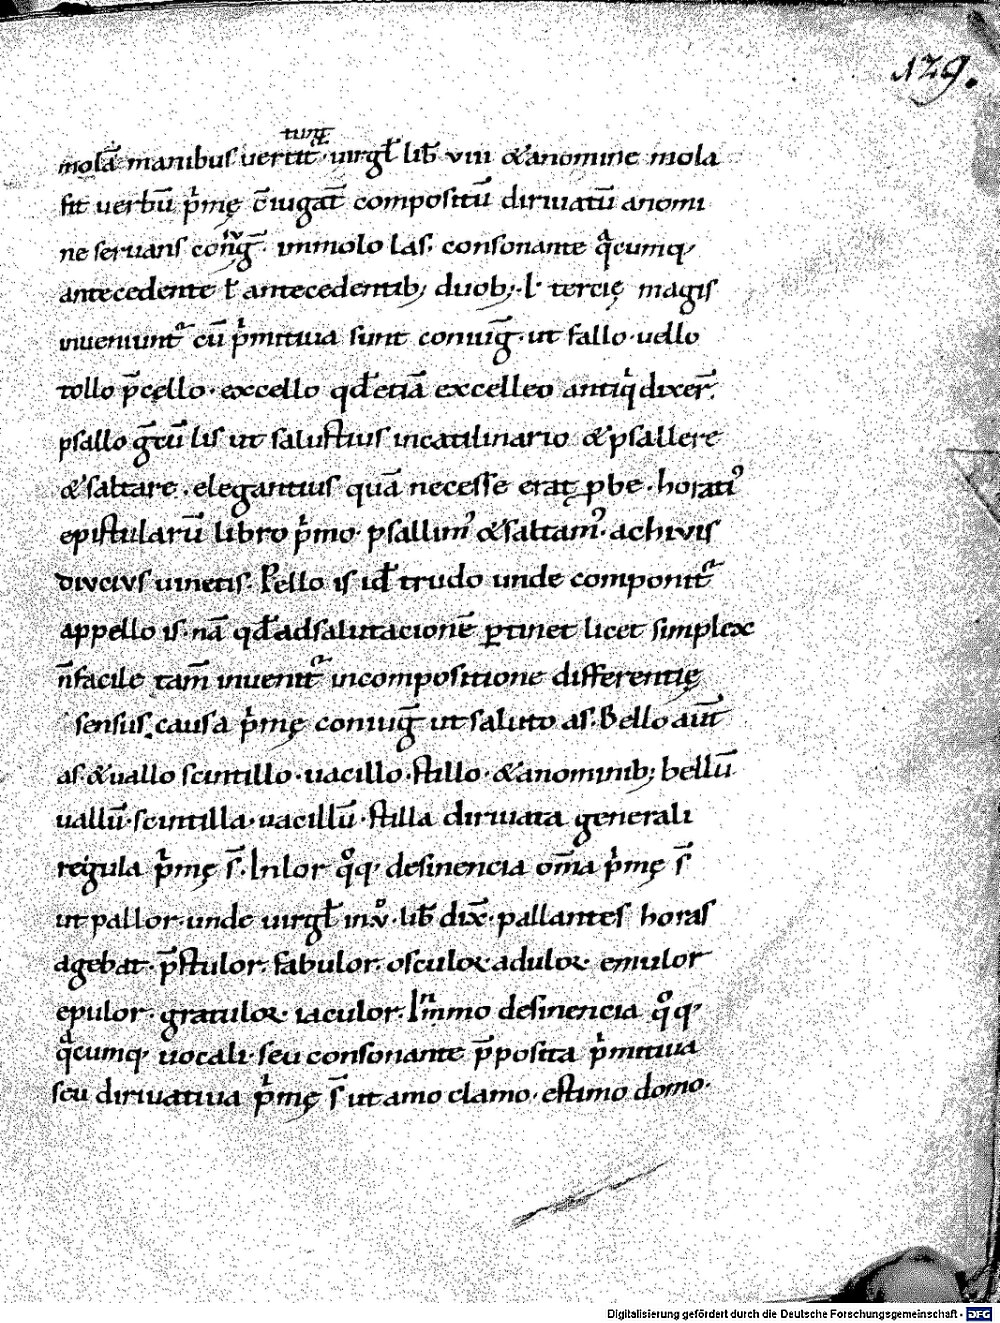 129.
turq̄
molā manibus vertit · uirgł lib̄ viii &anomine mola
fit uerbū p̍mę c̄iugat̄ compositū diriuatū anomi
ne seruans coniḡ īmmolo las. consonante qͣcumq;
antecedente ł antecedentib; duob; · l · tercię magis
inueniunt᷑ cū p̍mitiua sunt coniuḡ · ut fallo · uello
tollo p̄cello · excello qđ etiā excelleo antiq̍ dixer̄.
psallo ḡcū lis ut salustius incatilinario &psallere
&saltare . elegantius quā necesse erat ꝓbe . horati᾽
epistularū libro p̍mo · psallim᾽ &saltam᾽ · achivis
divcivs uinetis. Pello is iđ trudo unde componit᷑
appello is · nā qđ adsalutacionē ꝑtinet licet simplex
n̄ facile tam̄ inuenit᷑ incompositione differentię
sensus, causa p̍mę coniuḡ ut saluto as. Bello aut̄
as &uallo scintillo · uacillo · stillo · &anominib; bellū
uallū · scintilla · uacillū · stilla diriuata generali
regula p̍mę s̄. Inlor qͦq; desinencia om̄a p̍mę s̄
ut pallor · unde uirgł in xͦ · lib̄ dix̄ · pallantes horas
agebat · p̄stulor. fabulor. osculor adulor emulor
epulor · gratulor · iaculor. In̄mo desinencia qͦq;
qͣcumq; uocali · seu consonante p̄posita p̍mitiua
seu diriuatiua p̍mę s̄ ut amo clamo · estimo domo.
Digitalisierung gefördert durch die Deutsche Forschungsgemeinschaft - DFG